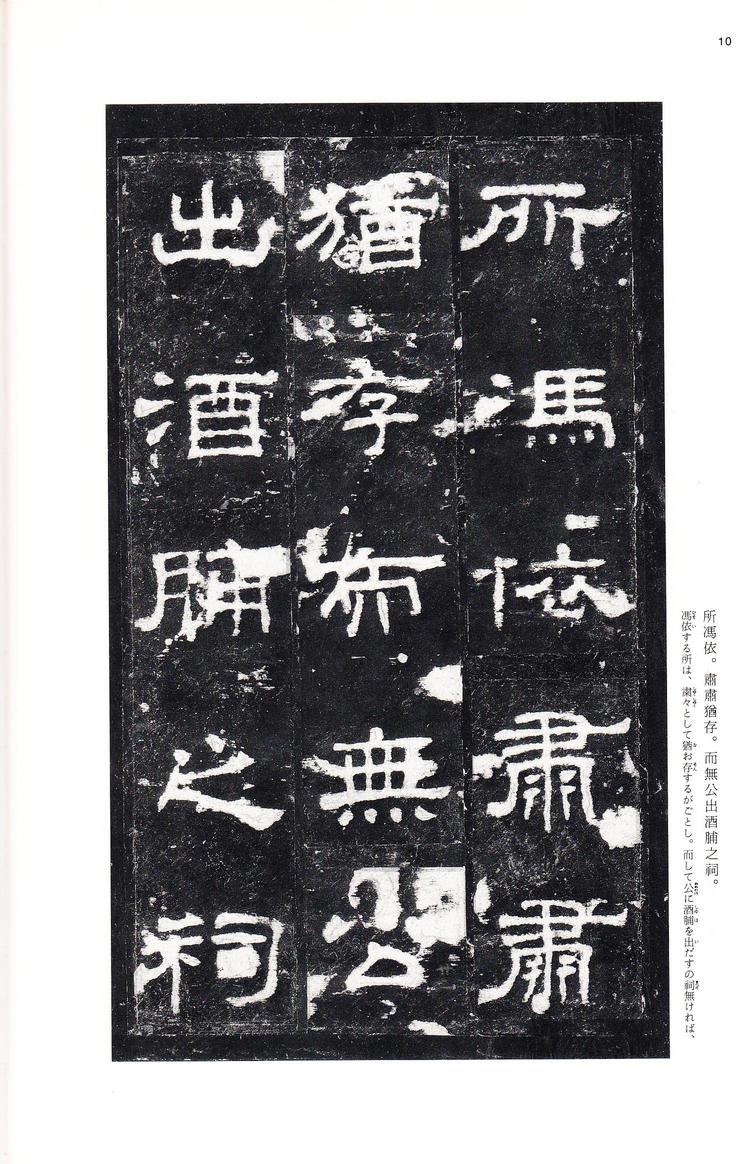 10
所馮依肅肅
猶存而無公
出酒脯之祠
所馮依。肅肅猶存。而無公出酒脯之祠。
馮依する所は、肅々として猶お存するがごとし。而して公に酒脯を出だすの祠無ければ、